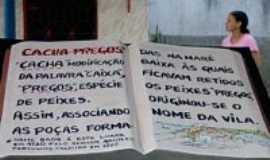 CACHA-PREGOS
"CACHA" MODIFICAÇÃO
DA PALAVRA "CAIXA",
"PREGOS", ESPÉCIE
DE PEIXES.
ASSIM, ASSOCIANDO
AS POÇAS FORMA-
DAS NA MARÉ
BAIXA ÀS QUAIS
FICAVAM RETIDOS
OS PEIXES "PREGOS"
ORIGINOU-SE O
NOME DA VILA.